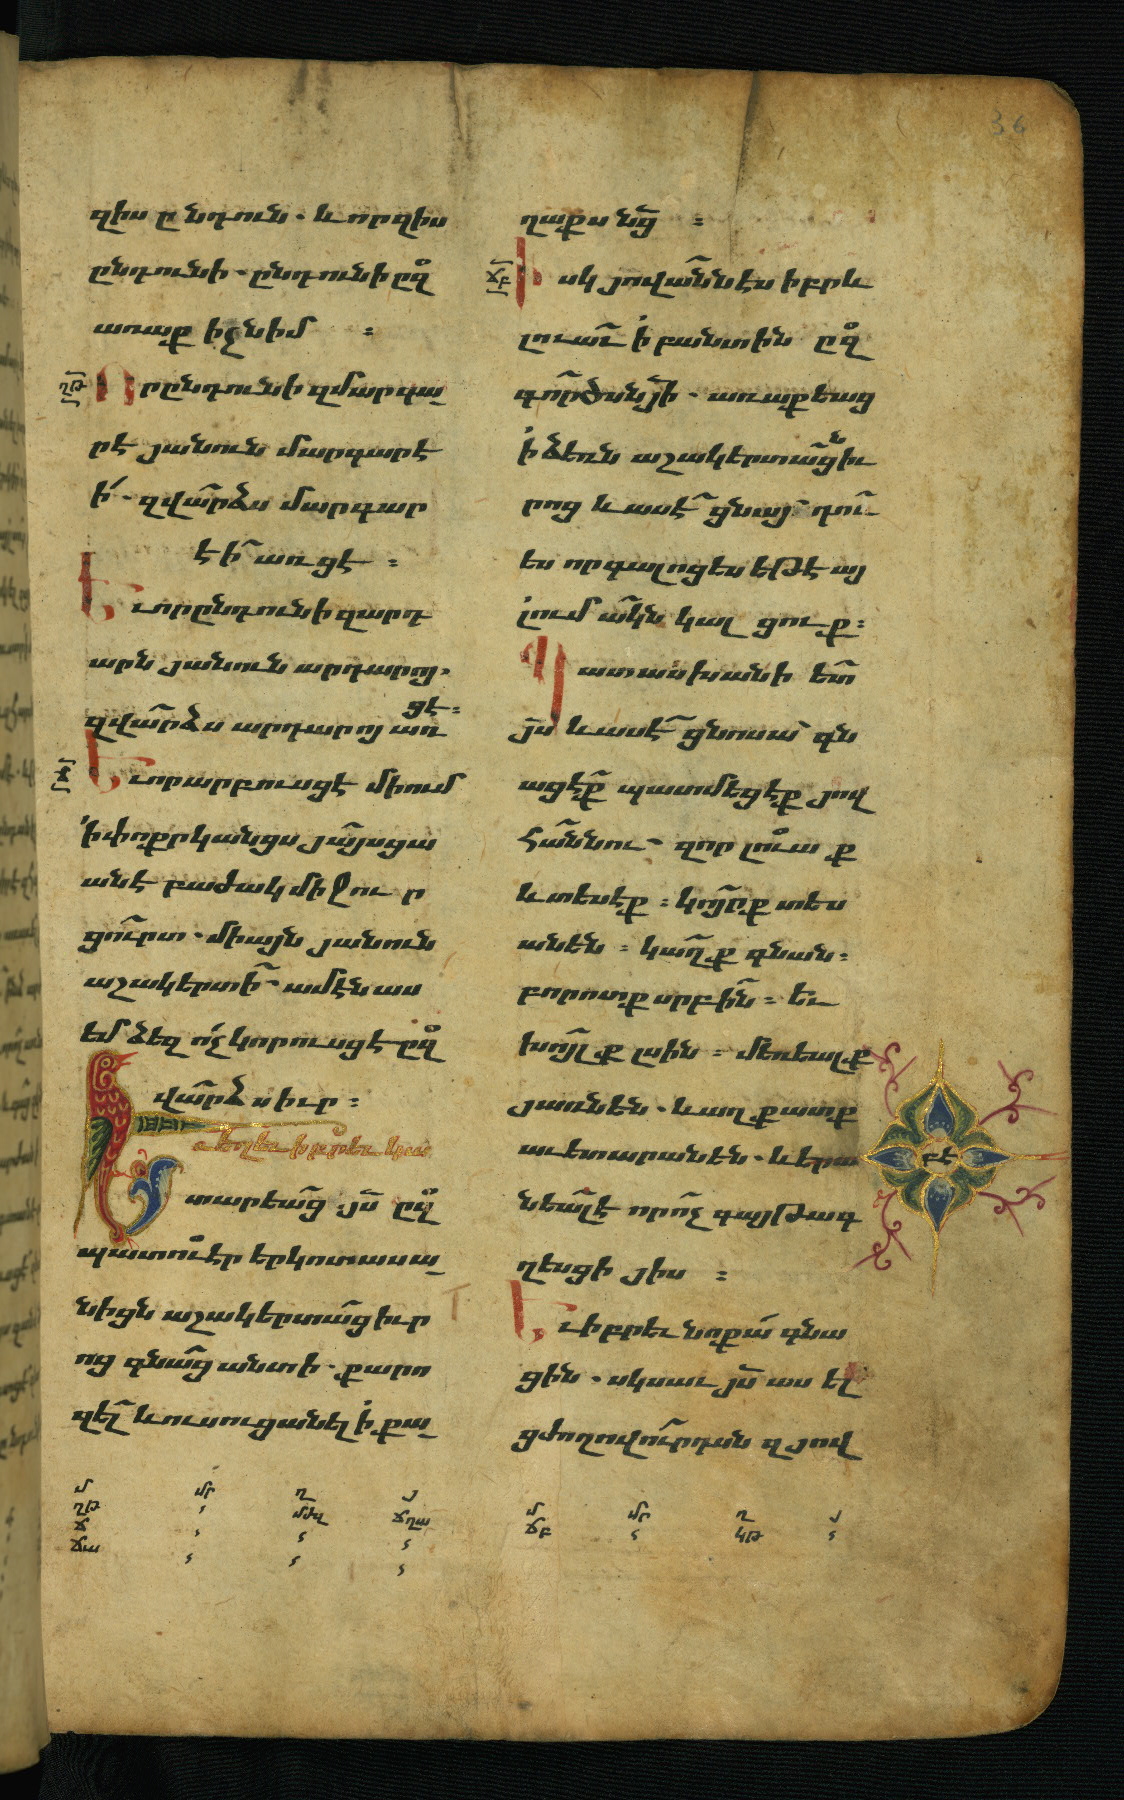 36
զիս ընդուն. և որ զիս
ընդունի. ընդունի զ
առաք իչն իմ :
ՂԹ Որ ընդունի զմարգա
րէ յանուն մարգարէ
ի. զվարձս մարգար
էի առցէ :
Եւ որ ընդունի զարդ
արն յանուն արդարոյ.
զվարձս արդարոյ առ
ցէ :
Ճ Եւ որ արբուսցէ միում
ի փոքրկանցս յայսցա
անէ բաժակ մի ջուր
ցուրտ. միայն յանուն
աշակերտի. ամէն աս
եմ ձեզ ոչ կորուսցէ զ
վարձս իւր :
Եւ եղեւ իբրեւ կա
տարեաց յս զ
պատուէր երկոտասա
նիցն աշակերտաց իւր
ոց գնաց անտի. քարո
զել և ուսուցանել ի քա
ղաքս նց :
ՃԲ Իսկ յովաննէս իբրև
լուաւ ի բանտին զ
գործսն քի. առաքեաց
ի ձեռն աշակերտաց ն իւ
րոց և ասէ ցնայ դու
ես որ գալոցես եթէ այ
լում ակն կալցուք :
Պատասխանի ետ
յս և ասէ ցնոսա գն
ացէք պատմեցէք յով
հաննու. զոր լուաք
և տեսէք : կոյրք տես
անեն : կաղք գնան :
բորոտք սրբին : եւ
խուլք լսին : մեռեալք
յառնեն. և աղքատք
աւետարանեն. և երա
նեալ է որ ոչ գայթագ
ղեսցի յիս :
ԲԷ
Եւ իբրեւ նոքա գնա
ցին. սկսաւ յս ասել
ցժողովուրդսն զյով
մ մր ղ յ
ղթ
ճ
ճա
մ մր ղ յ
ճբ կթ